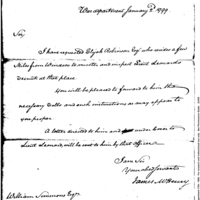 War department January 2d 1799.
Sir,
I have requested Elijah Robinson Esqr who resides a few
Miles from Windsor to muster and inspect Lieut Leonards
recruits at this place.
You will be pleased to forward to him the
necessary and such instructions as may appear to
you proper.
A letter directed to him and under cover to
Lieut Leonard, will be sent to him by that officer.
I am Sir
Your obed servant
James McHenry
William Simmons Esqr